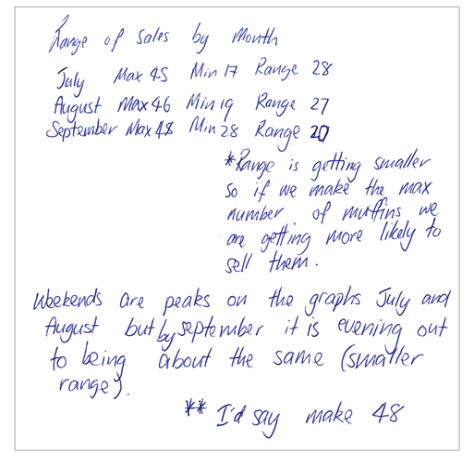 Range of sales by Month
July Max 45 Min 17 Range 28
August Max 46 Min 19 Range 27
September Max 48 Min 28 Range 20
*Range is getting smaller
so if we make the max
number of muffins we
are getting more likely to
sell them.
Weekends are peaks on the graphs July and
August but by september it is evening out
to being about the same (smaller
range).
** I'd say make 48